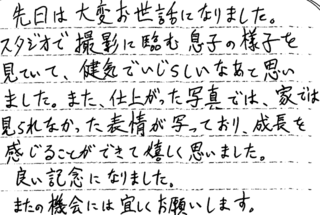 先日は大変お世話になりました。
スタジオで撮影に臨む息子の様子を
見ていて、健気でいじらしいなあと思い
ました。また、仕上がった写真では、家では
見られなかった表情が写っており、成長を
感じることができて嬉しく思いました。
良い記念になりました。
またの機会には宜しくお願いします。